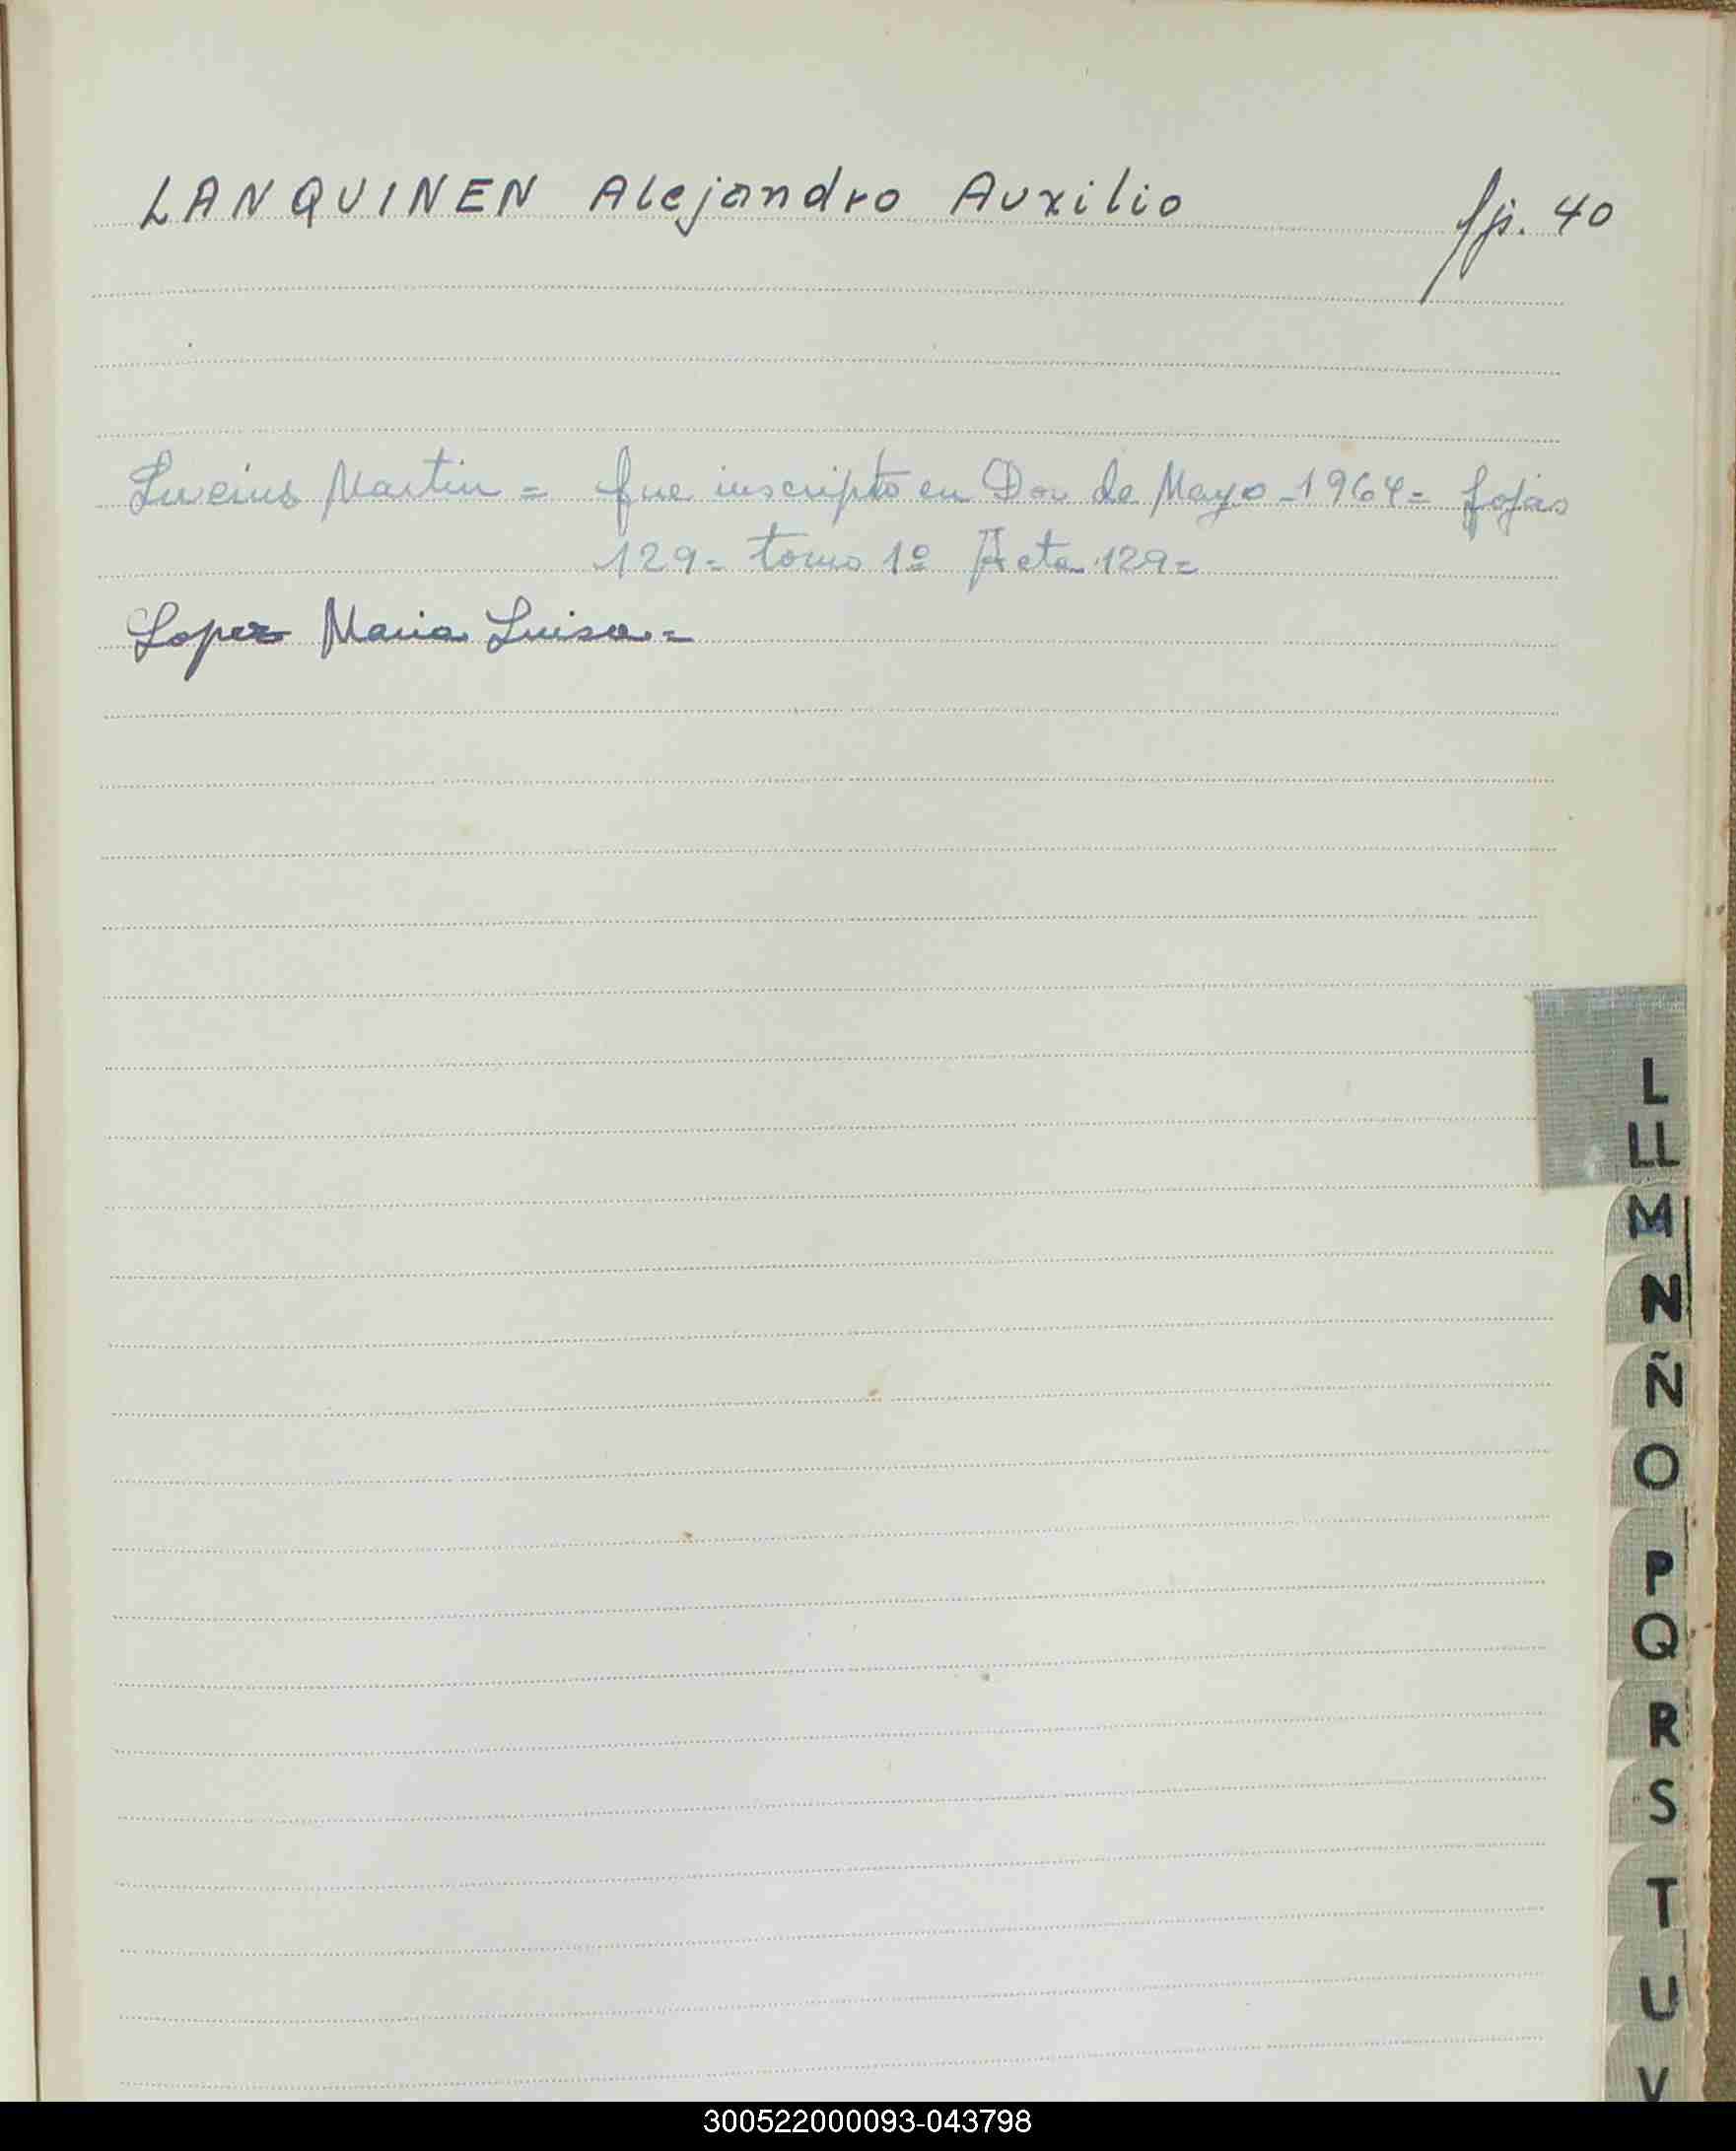 LANQUINEN Alejandro Auxilio fjs. 40
Martin = fue inscripto en Dor de Mayo - 1964 = fojas
129 = tomo 1º Acta 129 =
Lopez Maria Luisa. =
L
LL
M
N
Ñ
O
P
Q
R
S
T
U
V
300522000093-043798